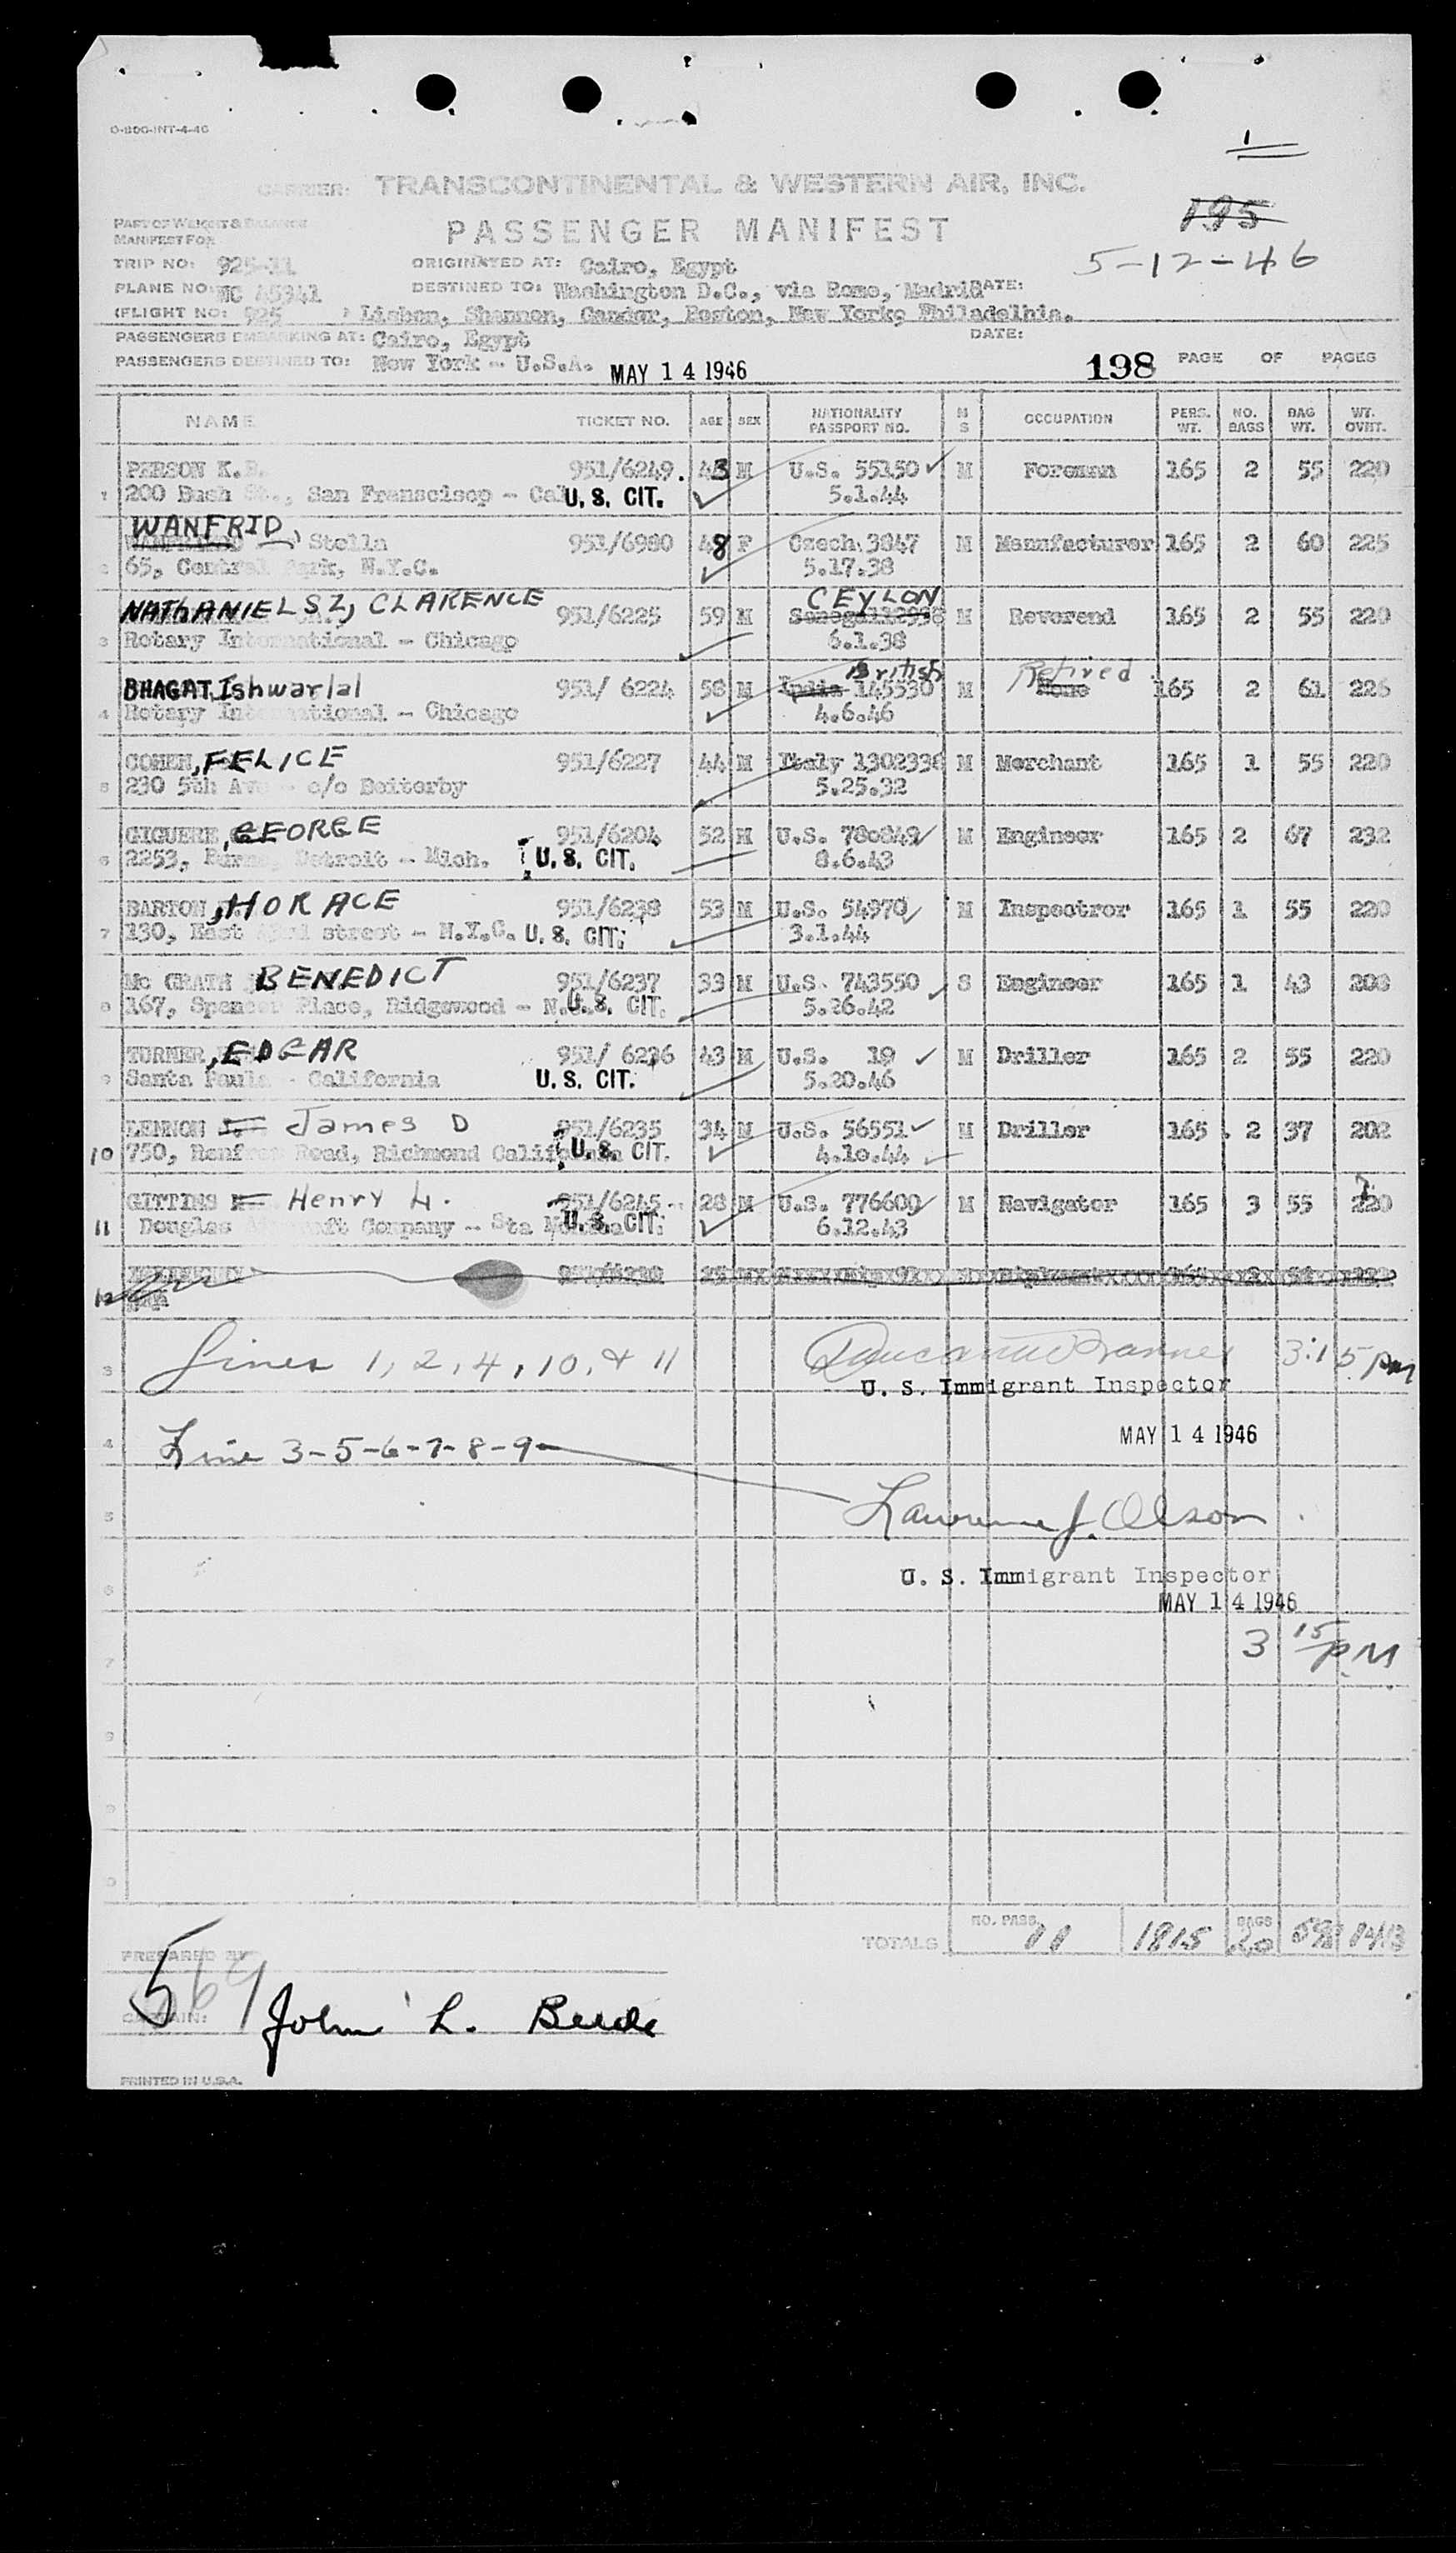 O-800-INT-4-46
1
CARRIER: TRANSCONTINENTAL & WESTERN AIR, INC.
195
PART OF WEIGHT & BALANCE
MANIFEST FOR
PASSENGER MANIFEST
5-12-46
TRIP NO: 925-11 ORIGINATED AT: Cairo, Egypt
PLANE NO: NC 45341 DESTINED TO: Washington D.C., via Rome, Madrid DATE:
(FLIGHT NO: 925 ) Lisbon, Shannon, Gander, Boston, New York, Philadelhia.
PASSENGERS EMBARKING AT: Cairo, Egypt DATE:
PASSENGERS DESTINED TO: New York - U.S.A. MAY 14 1946 198 PAGE OF PAGES
NAME TICKET NO. AGE SEX NATIONALITY PASSPORT NO. M S OCCUPATION PERS. WT. NO. BAGS BAG WT. WT. OVHT.
PERSON K. 951/6249. 43 M U.S. 55150 M Foreman 165 2 55 220
1 200 Bush St., San Franscisco - Cal U. S. CIT. 5.1.44
WANFRID, Stella 951/6980 48 F Czech 3847 M Manufacturer 165 2 60 225
2 65, Central Park, N.Y.C. 5.17.38
NATHANIELSZ, CLARENCE 951/6225 59 M CEYLON M Reverend 165 2 55 220
3 Rotary International - Chicago 6.1.38
British Retired
BHAGAT, Ishwarlal 951/ 6224 58 M India 145530 M None 165 2 61 226
4 Rotary International - Chicago 4.6.46
COHEN, FELICE 951/6227 44 M Italy 1302338 M Merchant 165 1 55 220
5 230 5th Ave - c/o Beiterby 5.25.32
GIGUERE, GEORGE 951/6204 52 M U.S. 780849 M Engineer 165 2 67 232
6 2253, Burns, Detroit - Mich. U. S. CIT. 8.6.43
BARTON, HORACE 951/6238 53 M U.S. 54970 M Inspectror 165 1 55 220
7 130, East 43rd street - N.Y.C. U. S. CIT. 3.1.44
Mc GRATH BENEDICT 951/6237 33 M U.S. 743550 S Engineer 165 1 43 208
8 167, Spencer Place, Ridgewood - N. U. S. CIT. 5.26.42
TURNER, EDGAR 951/ 6236 43 M U.S. 19 M Driller 165 2 55 220
9 Santa Paula - California U. S. CIT. 5.20.46
LENNON James D 951/6235 34 M U.S. 56551 M Driller 165 2 37 202
10 750, Renfrew Road, Richmond California U. S. CIT. 4.10.44
GITTINS Henry H. 951/6245 28 M U.S. 776600 M Navigator 165 3 55 220
11 Douglas Aircraft Company - Sta Monica U. S. CIT. 6.12.43
12
Lines 1, 2, 4, 10, & 11 3:15 pm
U. S. Immigrant Inspector
MAY 14 1946
Line 3-5-6-7-8-9
Lawrence J. Olson
U. S. Immigrant Inspector
MAY 14 1946
3 15 P.M
TOTALS NO. PASS. 11 1815 BAGS 20
PREPARED BY
569
CAPTAIN: John L. Burde
PRINTED IN U.S.A.